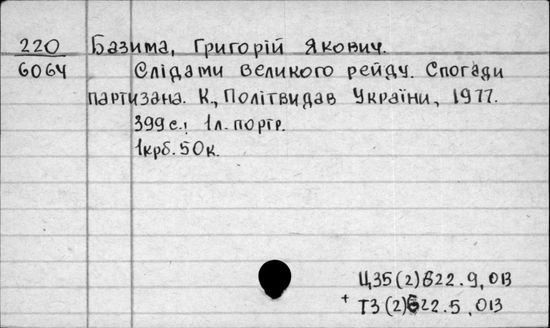 220 Базима, Григорій Якович.
6064 Слідами великого рейду. Спогади
партизана. К., Політвидав України, 1977.
399 с.; 1 л. портр.
1крб. 50к.
Ц35(2)622.9,013
+ Т3(2)622.5,013